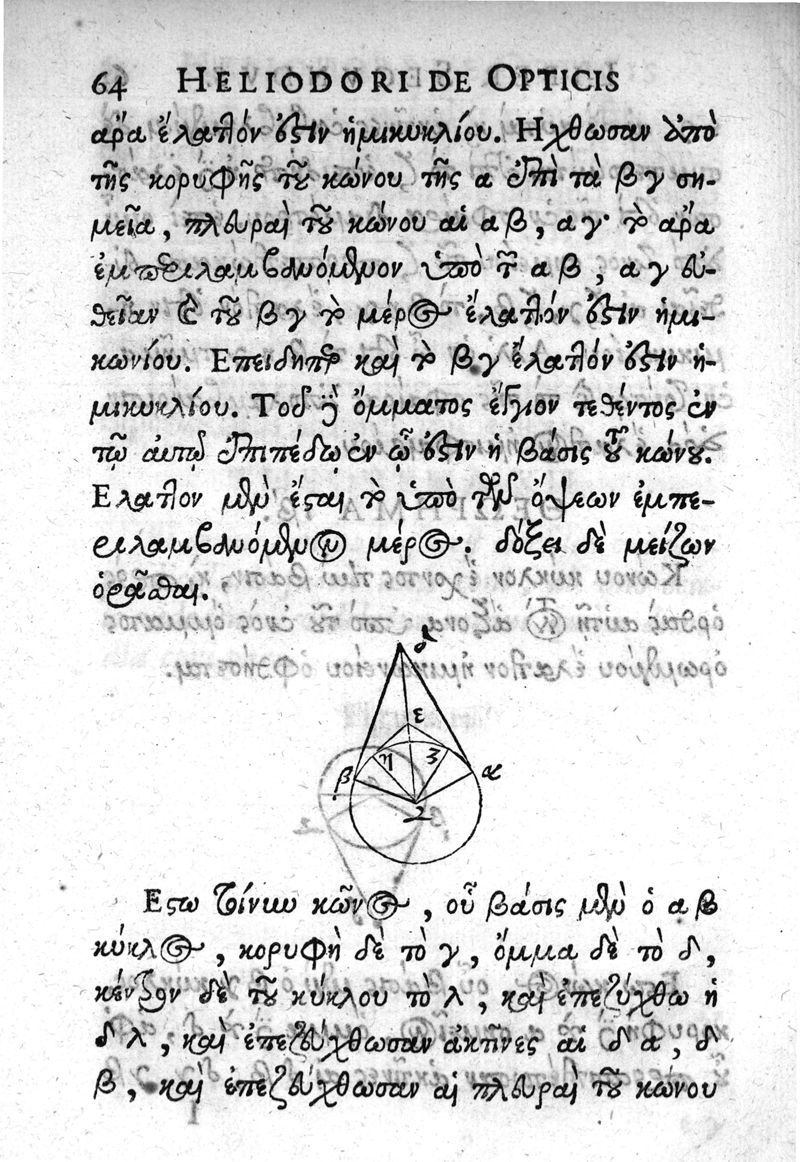 64 HELIODORI DE OPTICIS
ἄρα ἔλαττόν ἐστιν ἡμικυκλίου. Ηχθωσαν ἀπὸ
τῆς κορυφῆς τοῦ κώνου τῆς α ἐπὶ τὰ β γ ση-
μεῖα, πλευραὶ τοῦ κώνου αἱ α β, α γ· τὸ ἄρα
ἐμπεριλαμβανόμενον ὑπὸ τῶν α β, α γ εὐ-
θειῶν καὶ τοῦ β γ τὸ μέρος ἔλαττόν ἐστιν ἡμι-
κωνίου. Επειδήπερ καὶ τὸ β γ ἔλαττόν ἐστιν ἡ-
μικυκλίου. Τοῦ δὲ ὄμματος ἔγγιον τεθέντος ἐν
τῷ αὐτῷ ἐπιπέδῳ ἐν ᾧ ἐστιν ἡ βάσις τοῦ κώνου.
Ελαττον μὲν ἔσται τὸ ὑπὸ τῶν ὄψεων ἐμπε-
ριλαμβανόμενον μέρος. δόξει δὲ μείζων
ὁρᾶσθαι.
δ
ε
β η ξ α
λ
Εστω γὰρ κῶνος, οὗ βάσις μὲν ὁ α β
κύκλος, κορυφὴ δὲ τὸ γ, ὄμμα δὲ τὸ δ,
κέντρον δὲ τοῦ κύκλου τὸ λ, καὶ ἐπεζύχθω ἡ
δ λ, καὶ ἐπεζεύχθωσαν ἀκτῖνες αἱ δ α, δ
β, καὶ ἐπεζεύχθωσαν αἱ πλευραὶ τοῦ κώνου